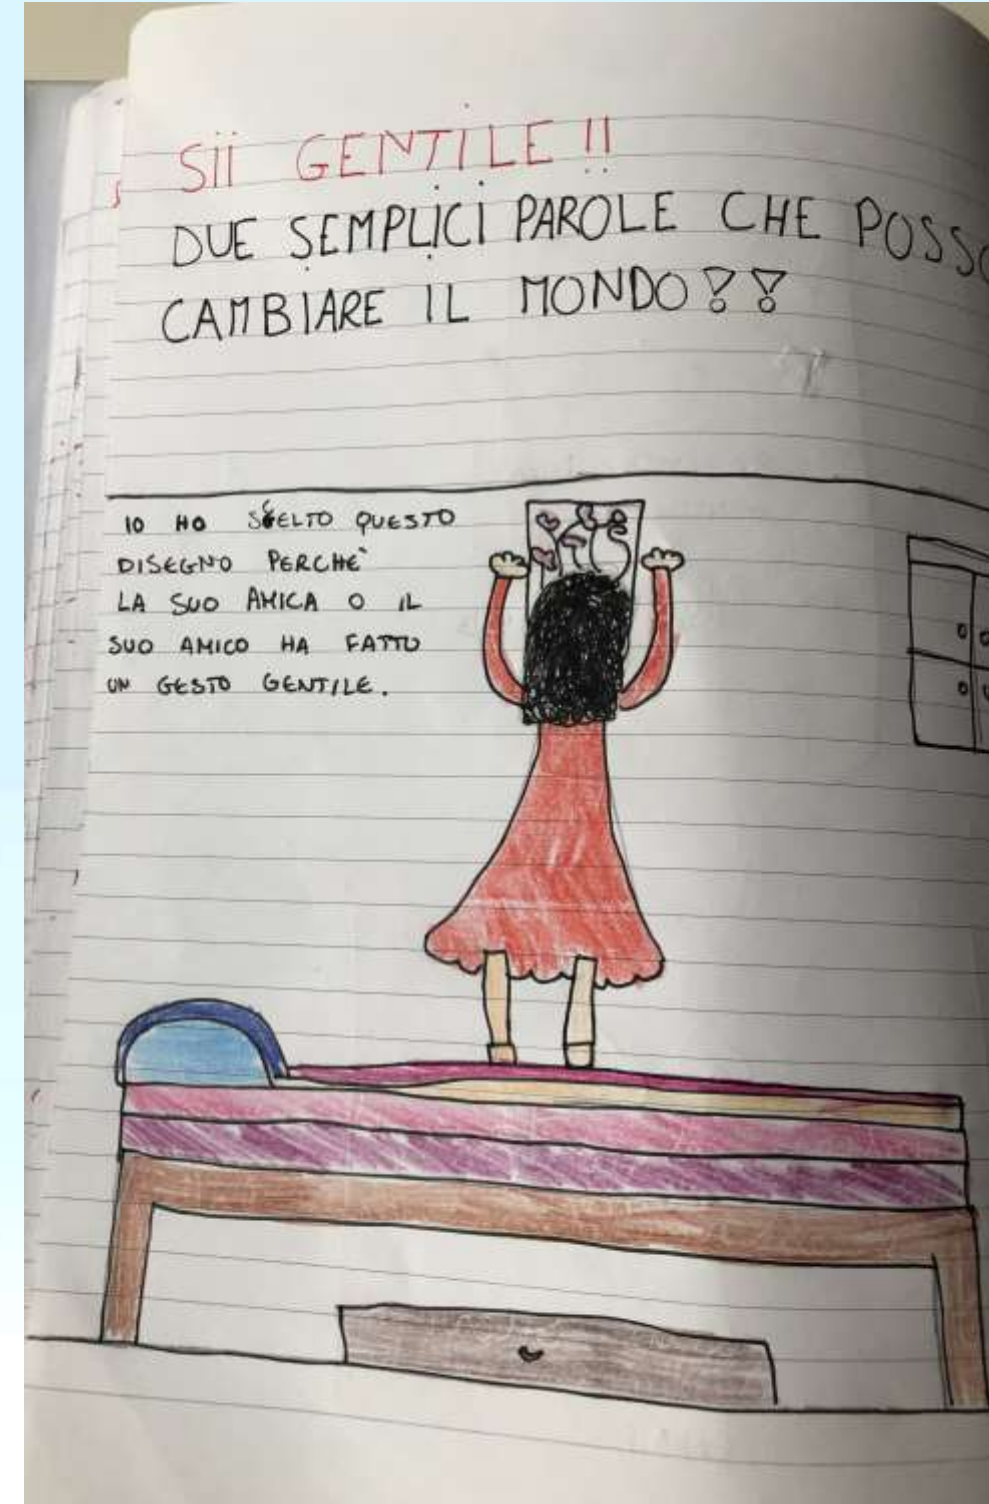 SII GENTILE!!
DUE SEMPLICI PAROLE CHE POSSO
CAMBIARE IL MONDO!!
IO HO SCELTO QUESTO
DISEGNO PERCHE`
LA SUO AMICA O IL
SUO AMICO HA FATTO
UN GESTO GENTILE.